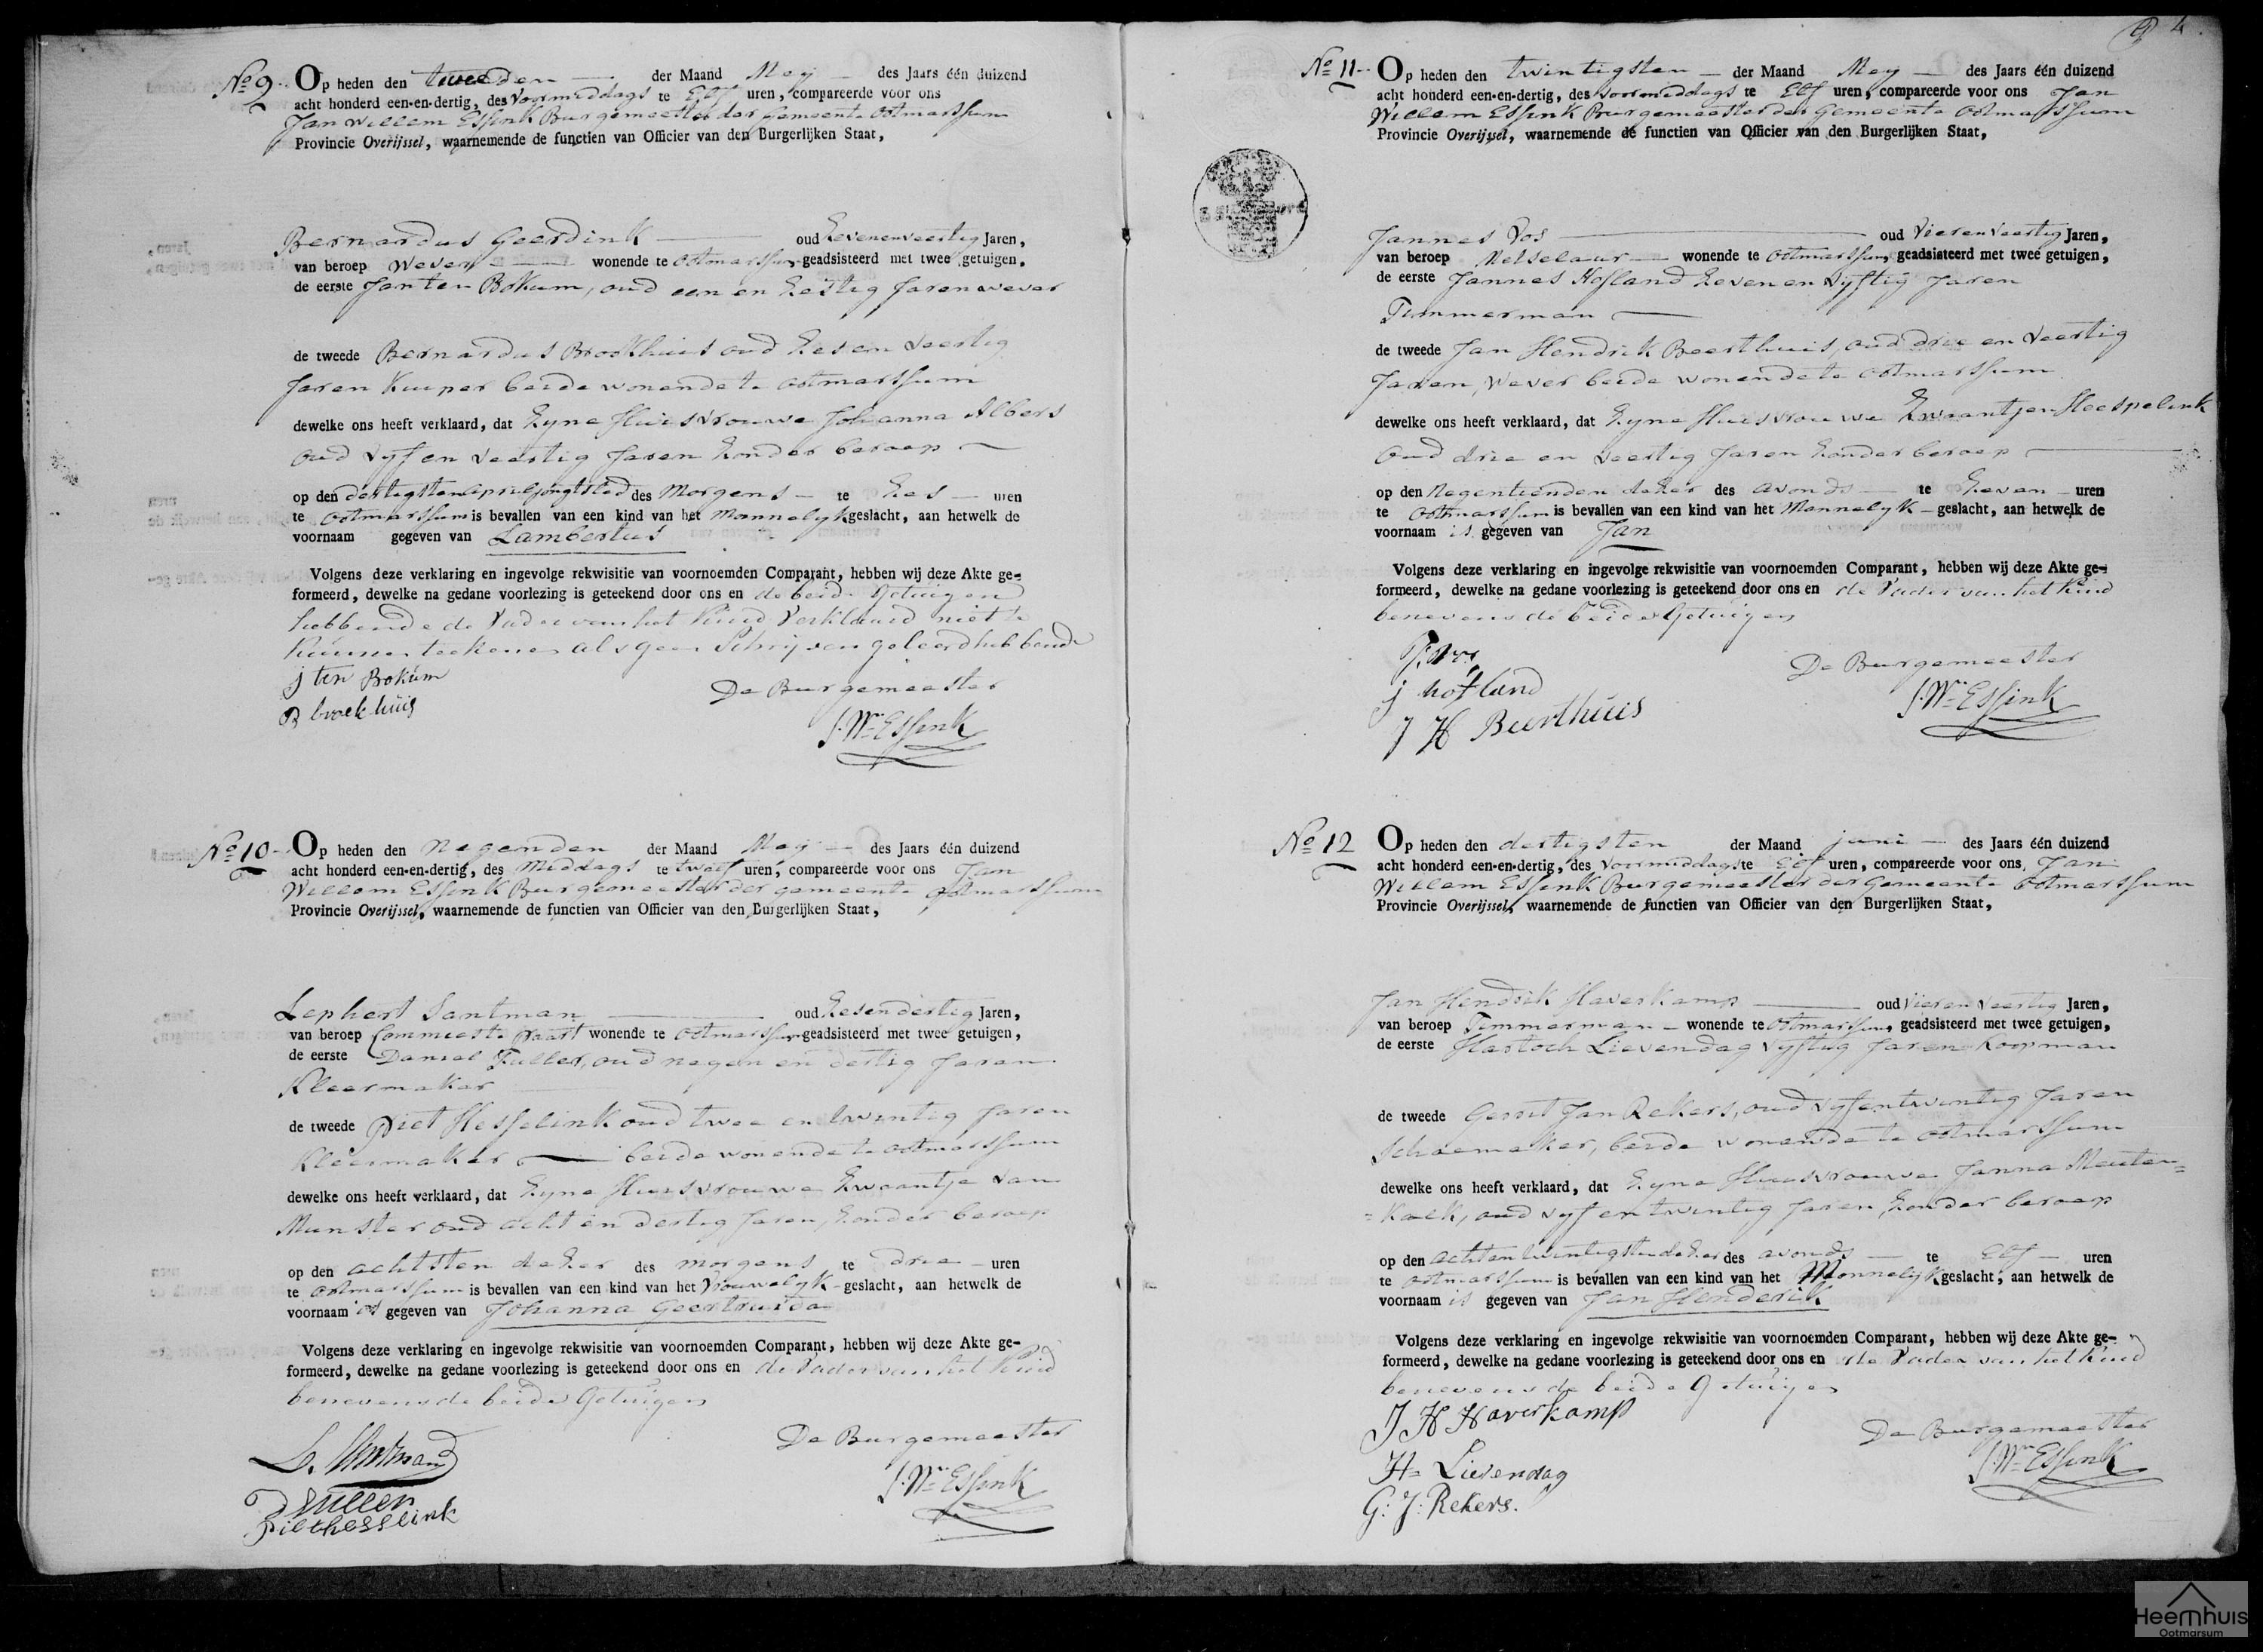 No 9. Op heden den tweeden der Maand Mey des Jaars één duizend
acht honderd een-en-dertig, des voormiddags te Elf uren, compareerde voor ons
Jan Willem Essink Burgemeester der gemeente Ootmarssum
Provincie Overijssel, waarnemende de functien van Officier van den Burgerlijken Staat,
Bernardus Geerdink oud Zevenenveertig Jaren,
van beroep Wever wonende te Ootmarssum geadsisteerd met twee getuigen.
de eerste Jan ten Bokum, oud een en Zestig Jaren wever
de tweede Bernardus Broekhuis oud Zes en veertig
Jaren Kuiper beide wonende te Ootmarssum
dewelke ons heeft verklaard, dat Zyne Huisvrouwe Johanna Albers
oud vyf en veertig Jaren Zonder beroep
op den dertigsten April jongstled des Morgens te Zes uren
te Ootmarssum is bevallen van een kind van het Mannelyk geslacht, aan hetwelk de
voornaam gegeven van Lambertus
Volgens deze verklaring en ingevolge rekwisitie van voornoemden Comparant, hebben wij deze Akte ge-
formeerd, dewelke na gedane voorlezing is geteekend door ons en de beide Getuigen
hebbende de Vader van het Kind Verklaard niet te
Kunnen teekenen als geen Schryven geleerd hebbende
j ten Bokum
B broekhuis
De Burgemeester
J. Wm Essink
No 10 Op heden den Negenden der Maand Mey des Jaars één duizend
acht honderd een-en-dertig, des Middags te twelf uren, compareerde voor ons Jan
Willem Essink Burgemeester der gemeente Ootmarssum
Provincie Overijssel, waarnemende de functien van Officier van den Burgerlijken Staat,
Lephert Santman oud Zesendertig Jaren,
van beroep Commies te Paart wonende te Ootmarssum geadsisteerd met twee getuigen,
de eerste Daniel Fuller, oud negen en dertig Jaren
Kleermaker
de tweede Piet Hesselink oud twee en twintig Jaren
Kleermaker beide wonende te Ootmarssum
dewelke ons heeft verklaard, dat Zyne Huisvrouwe Zwaantje van
Munster oud acht en dertig Jaren, Zonder beroep
op den achtsten dezer des morgens te drie uren
te Ootmarssum is bevallen van een kind van het Vrouwelyk geslacht, aan hetwelk de
voornaam is gegeven van Johanna Geertruida
Volgens deze verklaring en ingevolge rekwisitie van voornoemden Comparant, hebben wij deze Akte ge-
formeerd, dewelke na gedane voorlezing is geteekend door ons en de Vader van het Kind
benevens de beide Getuigen
L. Santman
D Fuller
Piet hesselink
De Burgemeester
J. Wm Essink
4
No 11 Op heden den twintigsten der Maand Mey des Jaars één duizend
acht honderd een-en-dertig, des voormiddags te Elf uren, compareerde voor ons Jan
Willem Essink Burgemeester der Gemeente Ootmarssum
Provincie Overijssel, waarnemende de functien van Officier van den Burgerlijken Staat,
Jannes Vos oud Vierenveertig Jaren,
van beroep Metselaar wonende te Ootmarssum, geadsisteerd met twee getuigen,
de eerste Jannes Hofland Zeven en vyftig Jaren
Timmerman
de tweede Jan Hendrik Beerthuis, oud drie en Veertig
Jaren, Wever beide wonende te Ootmarssum
dewelke ons heeft verklaard, dat Zyne Huisvrouwe Zwaantjen Heespelink
Oud drie en veertig Jaren Zonder beroep
op den Negentienden dezer des avonds te Zeven uren
te Ootmarssum is bevallen van een kind van het Mannelyk geslacht, aan hetwelk de
voornaam is gegeven van Jan
Volgens deze verklaring en ingevolge rekwisitie van voornoemden Comparant, hebben wij deze Akte ge-
formeerd, dewelke na gedane voorlezing is geteekend door ons en de Vader van het Kind
benevens de beide Getuigen
j hofland
J H Beerthuis
De Burgemeester
J. Wm Essink
No 12 Op heden den dertigsten der Maand juni des Jaars één duizend
acht honderd een-en-dertig, des voormiddags te Elf uren, compareerde voor ons, Jan
Willem Essink Burgemeester der Gemeente Ootmarssum
Provincie Overijssel, waarnemende de functien van Officier van den Burgerlijken Staat,
Jan Hendrik Haverkamp oud Vieren Veertig Jaren,
van beroep Timmerman wonende te Ootmarssum, geadsisteerd met twee getuigen,
de eerste Hartoch Lievendag vyftig Jaren Koopman
de tweede Gerrit Jan Rekers, oud vyfentwintig Jaren
Schoemaker, beide wonende te Ootmarssum
dewelke ons heeft verklaard, dat Zyne Huisvrouwe Janna Meulen=
=Kaek, oud vyf en twintig Jaren, Zonder beroep
op den achtentwintigsten dezer des avonds te Elf uren
te Ootmarssum is bevallen van een kind van het Mannelyk geslacht, aan hetwelk de
voornaam is gegeven van Jan Henderik
Volgens deze verklaring en ingevolge rekwisitie van voornoemden Comparant, hebben wij deze Akte ge-
formeerd, dewelke na gedane voorlezing is geteekend door ons en de Vader van het Kind
benevens de beide Getuigen
J H Haverkamp
H= Lievendag
G: J: Rekers.
De Burgemeester
J. Wm Essink
Heemhuis
Ootmarsum